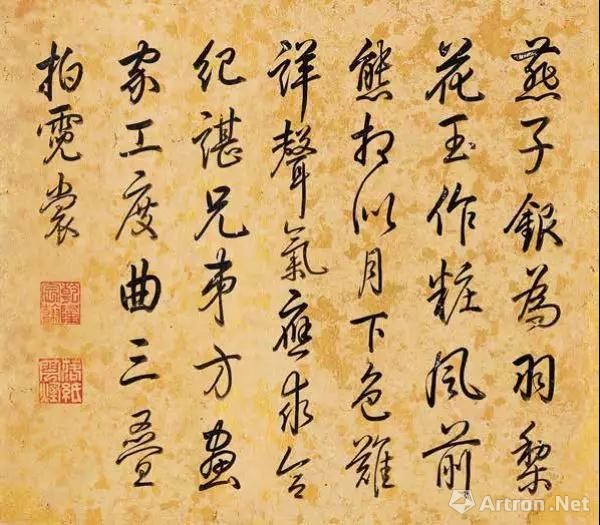 燕子銀為羽梨
花玉作粧風前
態相似月下色難
詳聲氣應求合
紀諶兄弟方畫
家工度曲三疊
拍霓裳
乾隆
宸翰
落紙
雲煙
Artron.Net